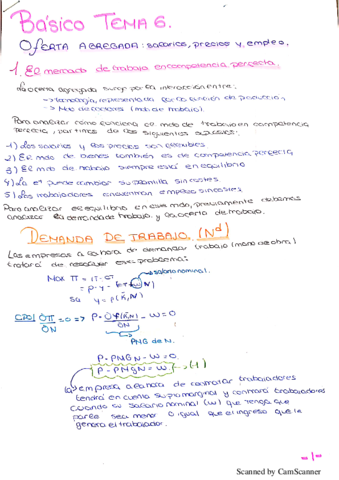 Básico TEMA 6.
OFERTA AGREGADA: salarios, precios y empleo.
1. El mercado de trabajo en competencia perfecta.
La oferta agregada surge por la interacción entre:
-> tecnología, representada por la función de producción,
-> Mdo de factores (mdo de trabajo).
Para analizar como funciona el mdo de trabajo en competencia
perfecta, partimos de los siguientes supuestos:
1) Los salarios y los precios son flexibles
2) El mdo de bienes también es de competencia perfecta
3) El mdo de trabajo siempre está en equilibrio
4) La eª puede cambiar su plantilla sin costes.
5) Los trabajadores encuentran empleo sin costes.
Para analizar el equilibrio en este mdo, previamente debemos
analizar la demanda de trabajo y la oferta de trabajo.
DEMANDA DE TRABAJO. (Nd)
Las empresas a la hora de demandar trabajo (mano de obra)
tratará de resolver este problema:
salario nominal.
Max π = IT - CT
SA y = F(K̄,N)
CPO) ∂π/∂N = 0 => P · ∂F(K̄,N)/∂N - W = 0
PMG de N.
P · PMGN - W = 0
P · PMGN = W -> (1)
La empresa a la hora de contratar trabajadores
tendrá en cuenta su pmarginal y contratará trabajadores
cuando su salario nominal (W) que tenga que
pagar sea menor o igual que el ingreso que le
genera el trabajador.
-1-
Scanned by CamScanner